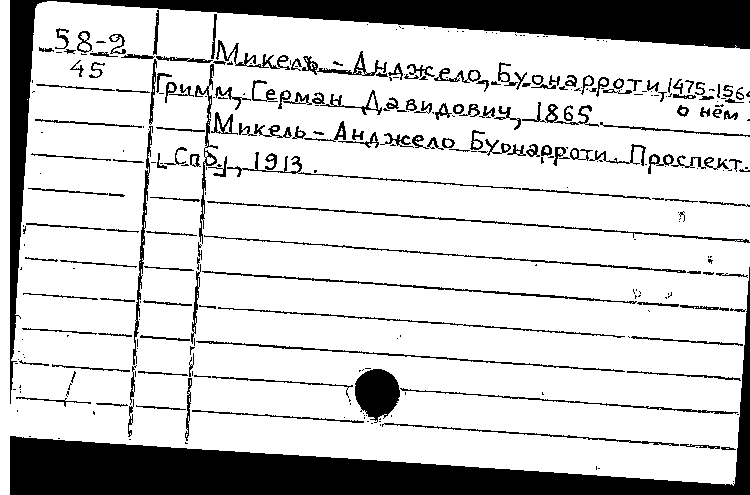 58-2
45
Микель - Анджело, Буонарроти, 1475-1564
о нём.
Гримм, Герман Давидович, 1865.
Микель - Анджело Буонарроти. Проспект.
[Спб], 1913.